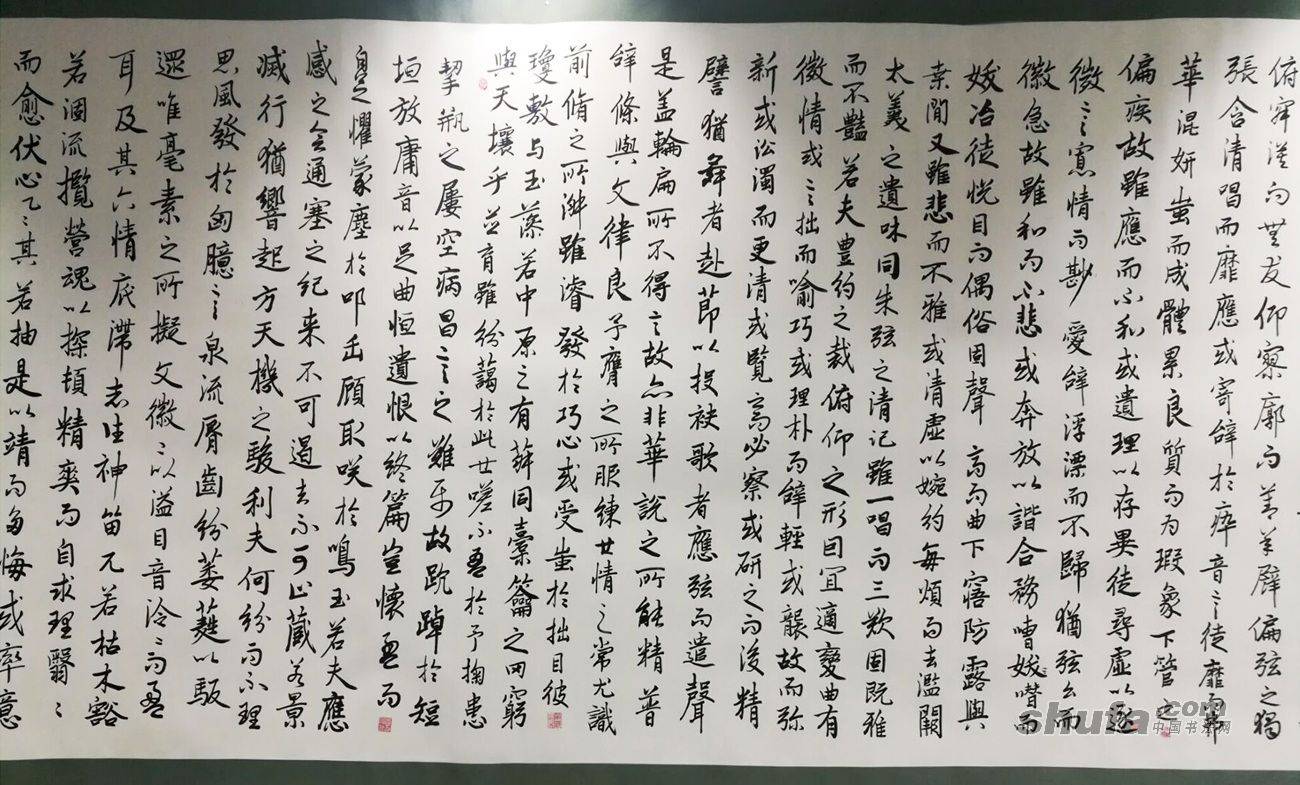 俯寂漠而無友仰寥廓而莫承譬偏弦之獨
張含清唱而靡應或寄辭於瘁音言徒靡而弗
華混妍蚩而成體累良質而为瑕象下管之
偏疾故雖應而不和或遺理以存異徒尋虛以逐
微言寡情而尠愛辭浮漂而不歸猶弦幺而
徽急故雖和而不悲或奔放以諧合務嘈囋而
妖冶徒悅目而偶俗固聲高而曲下寤防露與
桑間又雖悲而不雅或清虛以婉約每煩而去濫闕
太羹之遺味同朱弦之清汜雖一唱而三歎固既雅
而不豔若夫豐約之裁俯仰之形因宜適變曲有
微情或言拙而喻巧或理朴而辭輕或襲故而弥
新或沿濁而更清或覽而必察或研之而後精
譬猶舞者赴節以投袂歌者應弦而遣聲
是盖輪扁所不得言故亦非華說之所能精普
辭條與文律良予膺之所服練世情之常尤識
前脩之所淑雖濬發於巧心或受蚩於拙目彼
瓊敷与玉藻若中原之有菽同橐籥之罔窮
與天壤乎並育雖紛藹於此世嗟不盈於予掬患
挈瓶之屢空病昌言之難屬故踸踔於短
垣放庸音以足曲恒遺恨以終篇豈懷盈而
自足懼蒙塵於叩缶顧取咲於鳴玉若夫應
感之會通塞之紀来不可遏去不可止藏若景
滅行猶響起方天機之駿利夫何紛而不理
思風發於胸臆言泉流脣齒紛葳蕤以馺
遝唯毫素之所擬文徽〻以溢目音泠〻而盈
耳及其六情底滯志往神留兀若枯木豁
若涸流攬營魂以探頓精爽而自求理翳〻
而愈伏心乙〻其若抽是以竭而多悔或率意
shufa.com
中国书法网